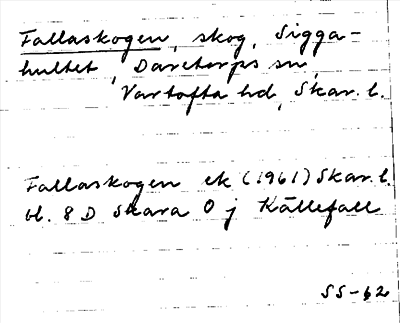 Fallaskogen, skog, Sigga-
hultet, Daretorps sn,
Vartofta hd, Skar. l.
Fallaskogen ek (1961) Skar. l.
bl. 8 D Skara 0 j Källefall
SS-62